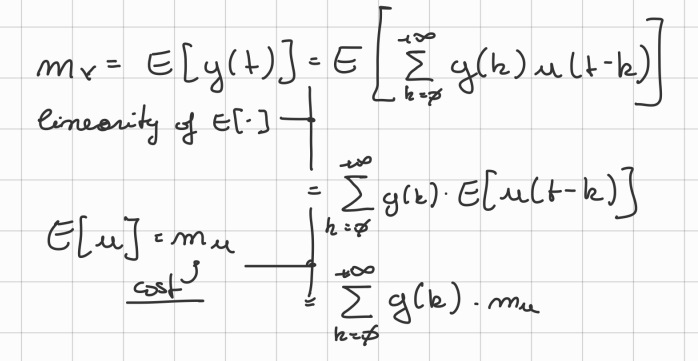 m_y = E[y(t)] = E[∑_{k=0}^{+∞} g(k) u(t-k)]
linearity of E[·]
= ∑_{k=0}^{+∞} g(k) · E[u(t-k)]
E[u] = m_u
cost
= ∑_{k=0}^{+∞} g(k) · m_u